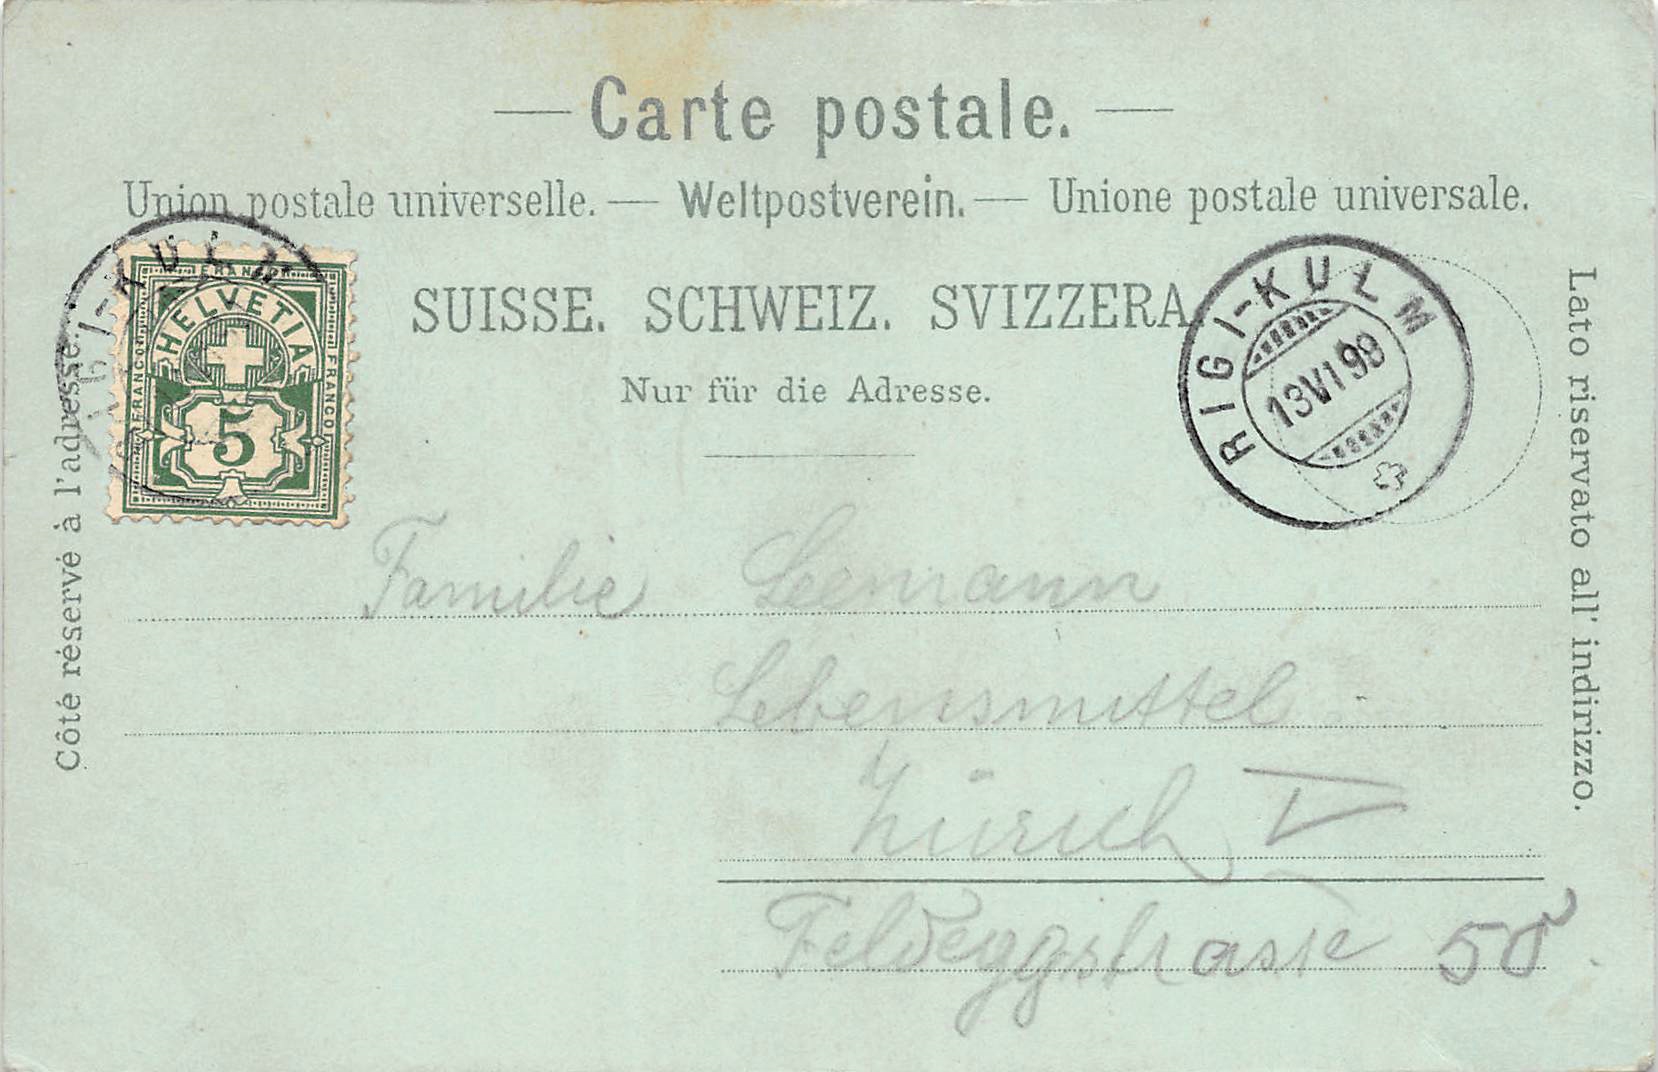 Carte postale.
Union postale universelle. — Weltpostverein. — Unione postale universale.
SUISSE. SCHWEIZ. SVIZZERA.
Nur für die Adresse.
Côté réservé à l'adresse.
Lato riservato all' indirizzo.
RIGI-KULM
FRANCO
FRANCO
FRANCO
HELVETIA
5
RIGI-KULM
13 VI 98
Familie Seemann
Lebensmittel
Zürich V
Feldeggstrasse 50